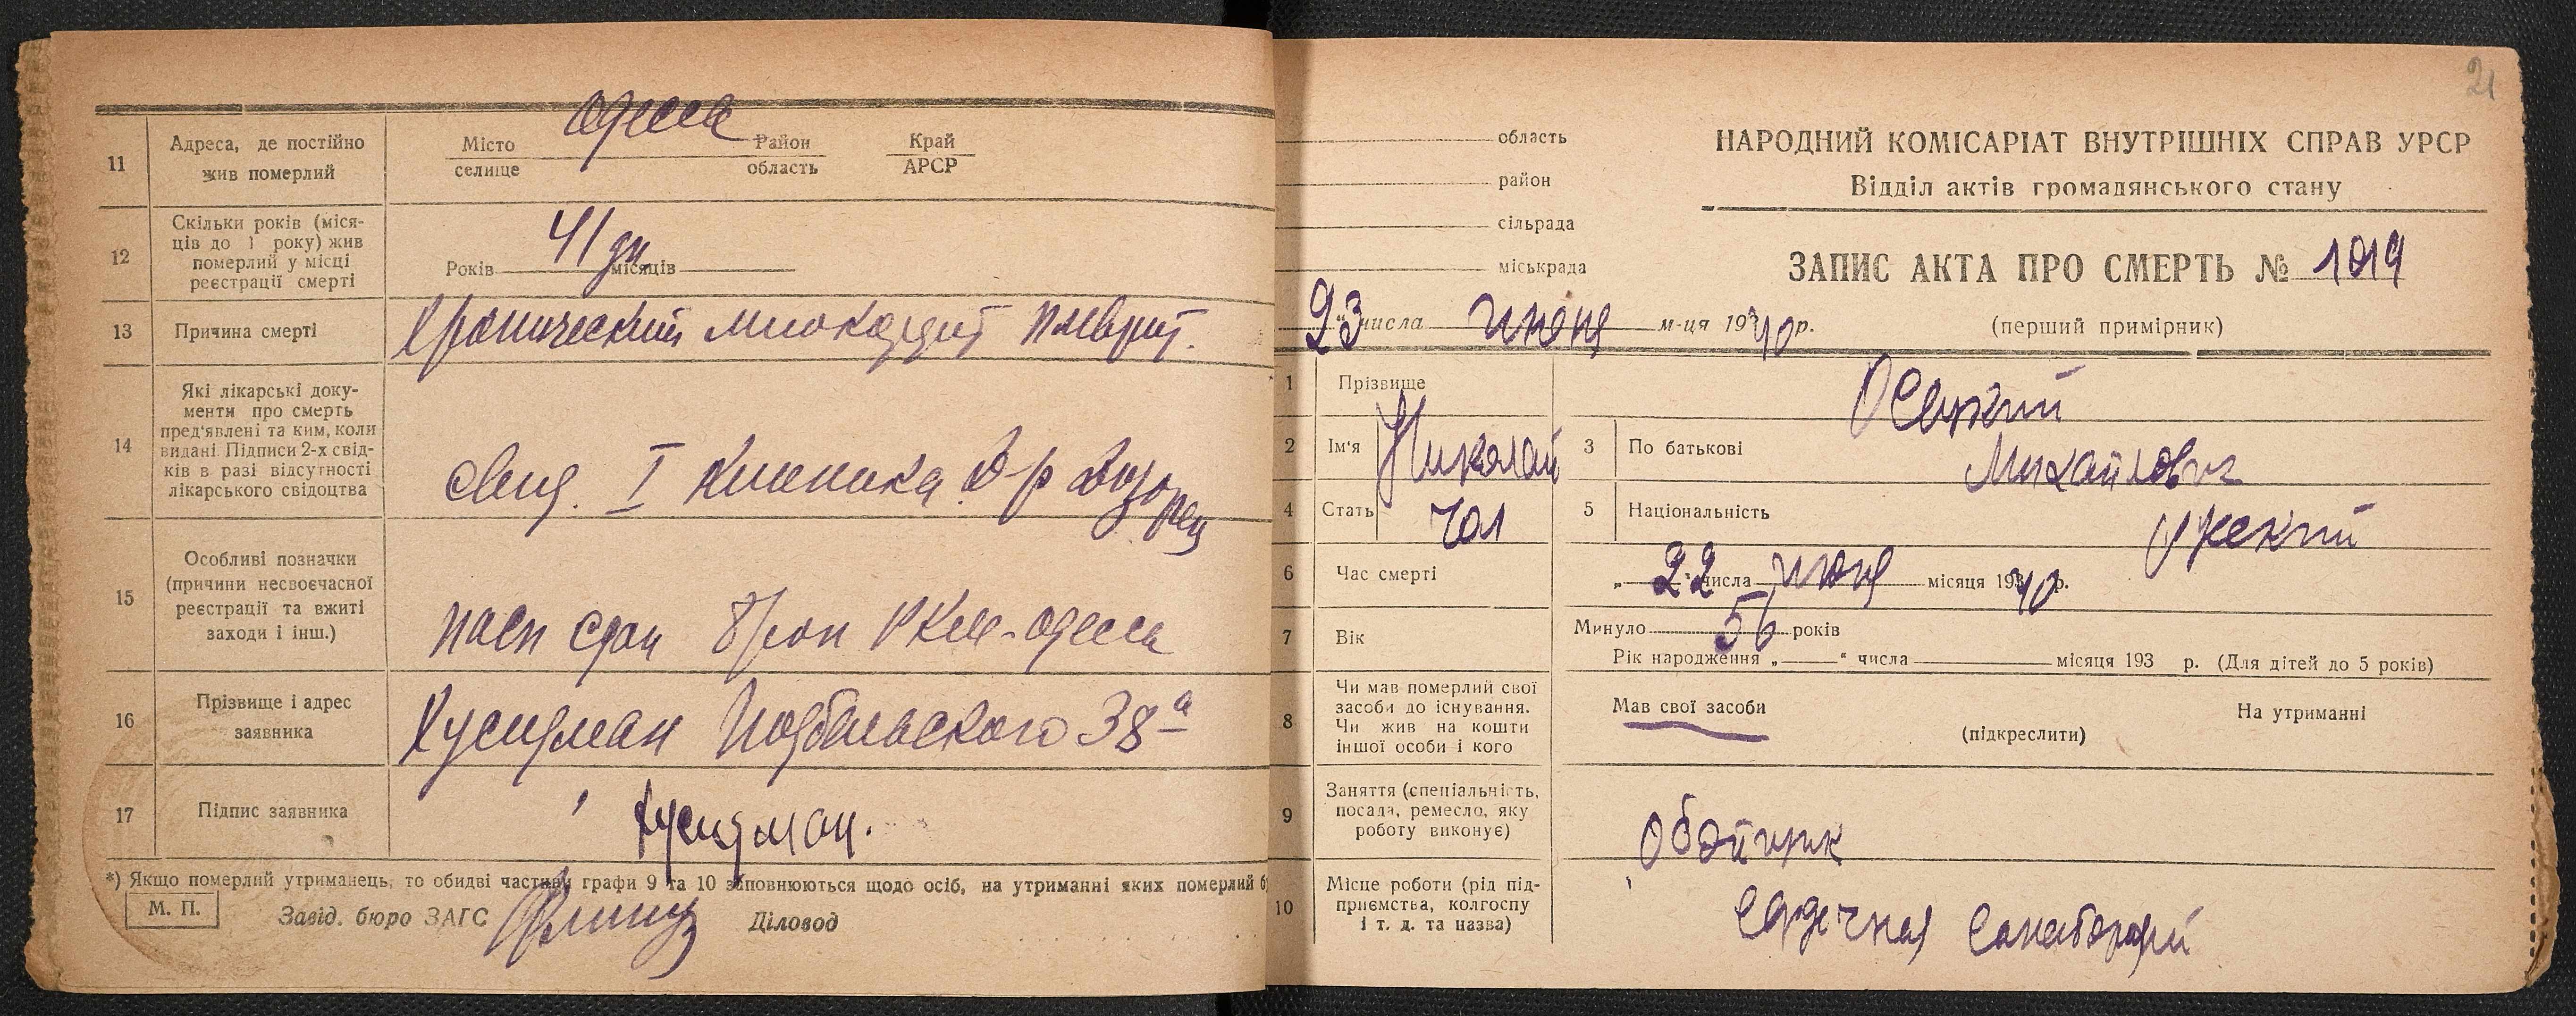 Одесса
11 Адреса, де постійно жив померлий
Місто селище Район область Край АРСР
12 Скільки років (міся-
ців до 1 року) жив
померлий у місці
реєстрації смерті
Років 41 дн. місяців
13 Причина смерті Хронический миокардит плеврит.
14 Які лікарські доку-
менти про смерть
пред'явлені та ким, коли
видані. Підписи 2-х свід-
ків в разі відсутності
лікарського свідоцтва
свид. I клиника Д-р
15 Особливі позначки
(причини несвоєчасної
реєстрації та вжиті
заходи і інш.)
пасп сдан 8/рон РКМ-Одесса
16 Прізвище і адрес
заявника
Хусидман Подбельского 38а
17 Підпис заявника Хусидман.
*) Якщо померлий утриманець, то обидві частини графи 9 та 10 заповнюються щодо осіб, на утриманні яких померлий б
М. П. Завід. бюро ЗАГС Діловод
21
область
район
сільрада
міськрада
НАРОДНИЙ КОМІСАРІАТ ВНУТРІШНІХ СПРАВ УРСР
Відділ актів громадянського стану
ЗАПИС АКТА ПРО СМЕРТЬ № 1019
23 числа июня м-ця 1940 р. (перший примірник)
1 Прізвище
2 Ім'я Николай 3 По батькові Михайлович
4 Стать чол 5 Національність русский
6 Час смерті „22" числа июня місяця 1940 р.
7 Вік Минуло 56 років
Рік народження „ " числа місяця 193 р. (Для дітей до 5 років)
8 Чи мав померлий свої
засоби до існування.
Чи жив на кошти
іншої особи і кого
Мав свої засоби (підкреслити) На утриманні
9 Заняття (спеціальність,
посада, ремесло, яку
роботу виконує)
Обойщик
10 Місце роботи (рід під-
приємства, колгоспу
і т. д. та назва)
Сердечная санаторий